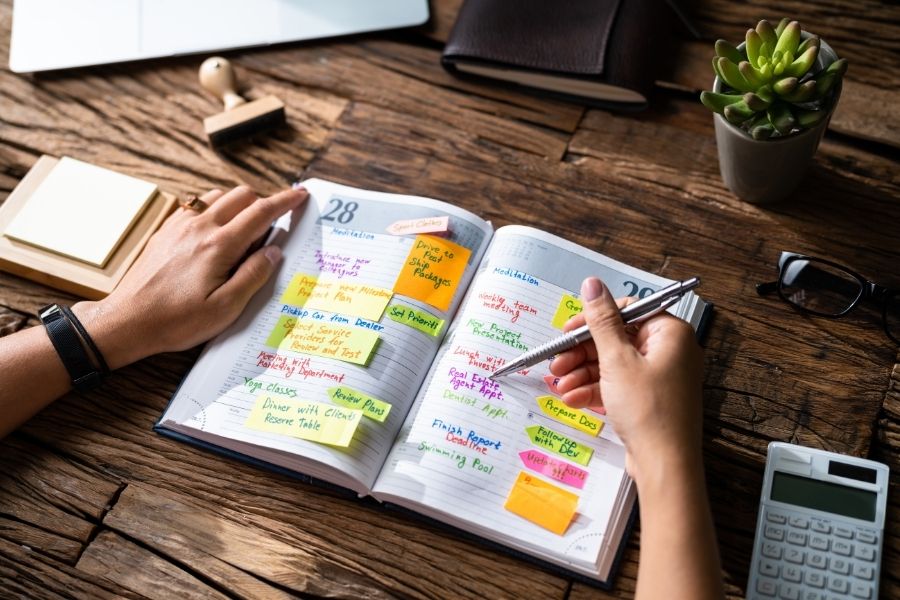 28
Meditation
Sport Clothes
Introduce new
Manager to
Colleagues
Drive to
Post
Ship
Packages
Prepare new Milestone
Project Plan
Pickup Car from Dealer
Set Priorities
Select Service
Providers for
Review and Test
Meeting with
Marketing Department
Yoga Classes
Review Plans
Dinner with Clients
Reserve Table
Meditation
Weekly team
meeting
New Project
Presentation
Lunch with
Real Estate
Agent Appt.
Dentist Appt.
Prepare Docs
Finish Report
Deadline
Followup
with Dev
Update Charts
Swimming Pool